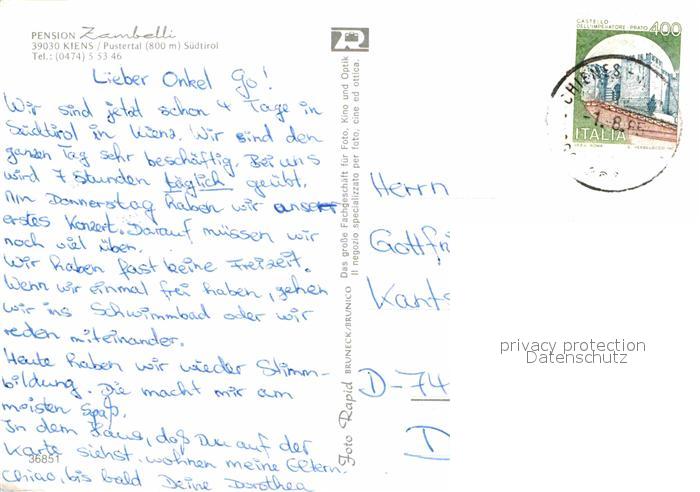 PENSION Zambelli
39030 KIENS / Pustertal (800 m) Südtirol
Tel.: (0474) 5 53 46
Lieber Onkel Go!
Wir sind jetzt schon 4 Tage in
Südtirol in Kienz. Wir sind den
ganzen Tag sehr beschäftig. Bei uns
wird 7 Stunden täglich geübt.
Am Donnerstag haben wir unser
erstes Konzert. Darauf müssen wir
noch viel üben.
Wir haben fast keine Freizeit.
Wenn wir einmal frei haben, gehen
wir ins Schwimmbad oder wir
reden miteinander.
Heute haben wir wieder Stimm-
bildung. Die macht mir am
meisten Spaß.
In dem Haus, daß Du auf der
Karte siehst, wohnen meine Eltern.
Chiao, bis bald Deine Dorothea
36851
Foto Rapid BRUNECK/BRUNICO Das große Fachgeschäft für Foto, Kino und Optik
Il negozio specializzato per foto, cine ed ottica.
CASTELLO
DELL'IMPERATORE - PRATO
400
ITALIA
CHIENES
-1.-8.
Herrn
Gottfri
Kants
D-74
D
privacy protection
Datenschutz